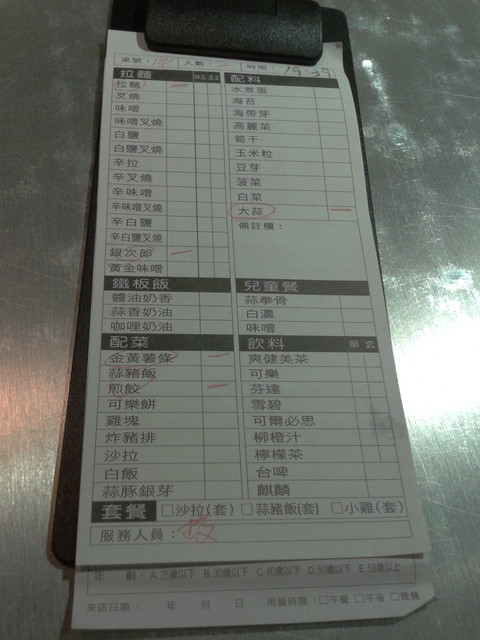 桌號： 人數： 時間：19:39
拉麵
拉麵 一
叉燒
味噌
味噌叉燒
白鹽
白鹽叉燒
辛拉
辛叉燒
辛味噌
辛味噌叉燒
辛白鹽
辛白鹽叉燒
銀次郎 一
黃金味噌
配料
水煮蛋
海苔
海帶芽
高麗菜
筍干
玉米粒
豆芽
菠菜
白菜
大蒜 一
備註欄：
鐵板飯
醬油奶香
蒜香奶油
咖哩奶油
兒童餐
蒜拳骨
白濃
味噌
配菜
金黃薯條 一
蒜豬飯
煎餃 一
可樂餅
雞塊
炸豬排
沙拉
白飯
蒜豚銀芽
飲料 單 套
爽健美茶
可樂
芬達
雪碧
可爾必思
柳橙汁
檸檬茶
台啤
麒麟
套餐 □沙拉(套) □蒜豬飯(套) □小雞(套)
服務人員：
年 齡：A.25歲以下 B.30歲以下 C.40歲以下 D.50歲以下 E.50歲以上
來店日期： 年 月 日 用餐時間：□午餐 □午後 □晚餐